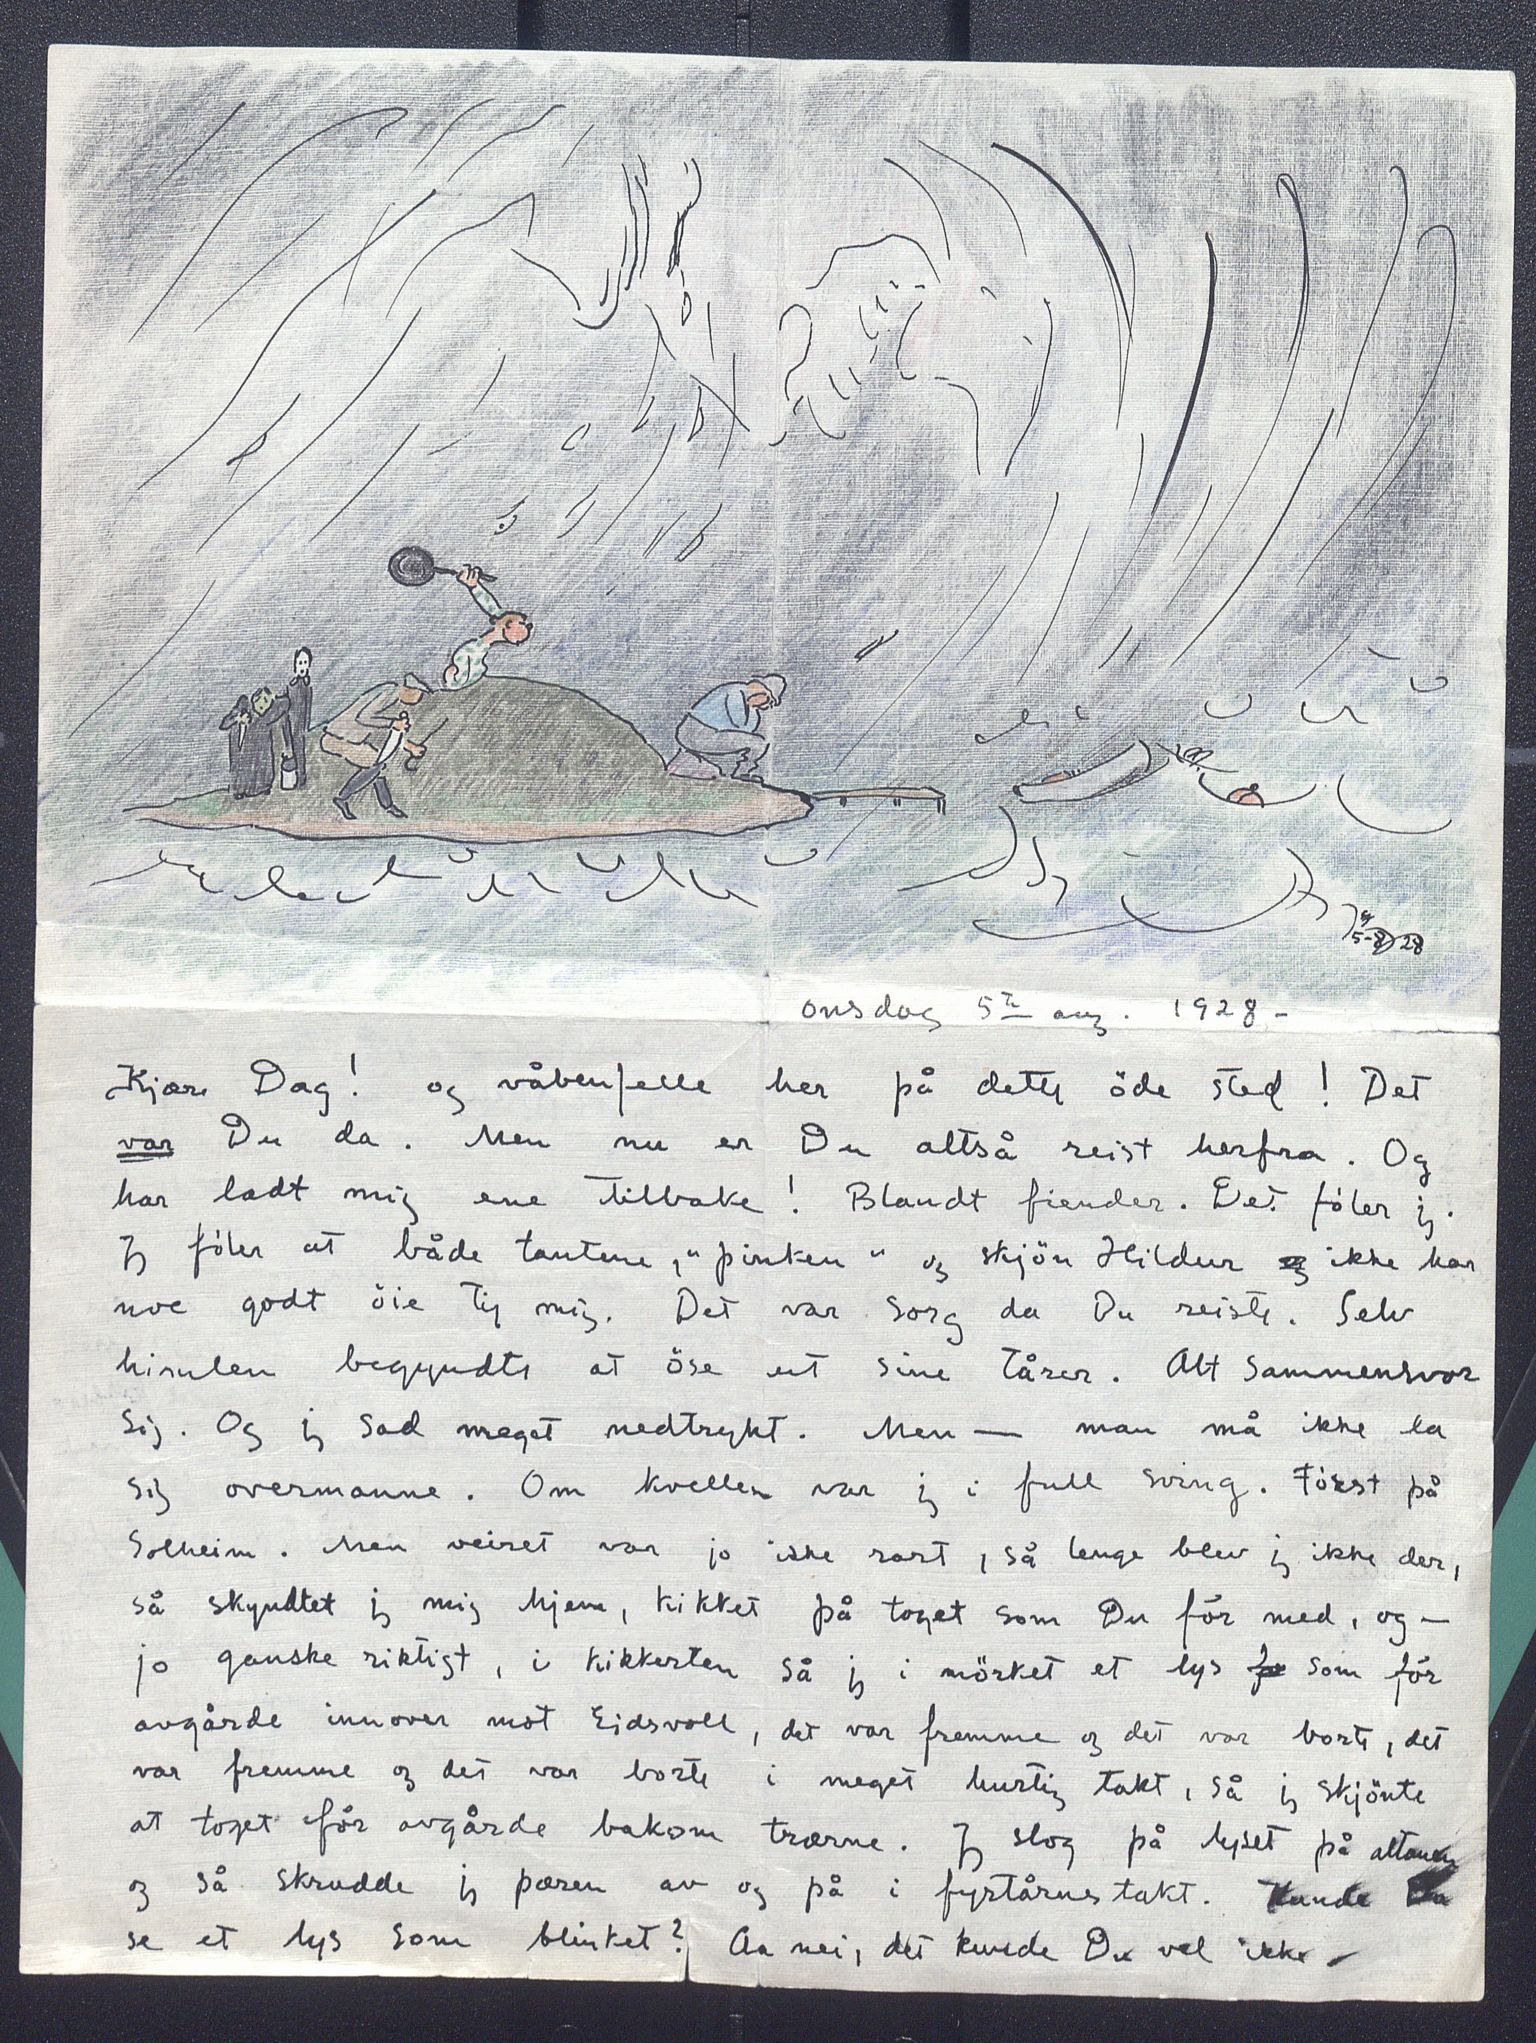 5-8-28
onsdag 5te aug. 1928-
Kjære Dag! og våbenfelle her på dette öde sted! Det
var Du da. Men nu er Du altså reist herfra. Og
har ladt mig ene tilbake! Blandt fiender. Det föler jeg.
Jeg föler at både tantene, "pinken" og skjön Hildur ikke har
noe godt öie til mig. Det var sorg da Du reiste. Selv
himlen begyndte at öse ut sine tårer. Alt sammensvor
sig. Og jeg sad meget nedtrykt. Men — man må ikke la
sig overmanne. Om kvellen var jeg i full sving. Först på
Solheim. Men veiret var jo ikke rart, så lenge blev jeg ikke der,
så skyndtet jeg mig hjem, kikket på toget som Duför med, og —
jo ganske riktigt, i kikkerten så jeg i mörket et lys som för
avgårde innover mot Eidsvoll, det var fremme og det var borte, det
var fremme og det var borte i meget hurtig takt, så jeg skjönte
at toget för avgårde bakom trærne. Jeg slog på lyset på altanen
og så skrudde jeg pæren av og på i fyrtårnes takt. Kunde Du
se et lys som blinket? Aa nei, det kunde Du vel ikke –